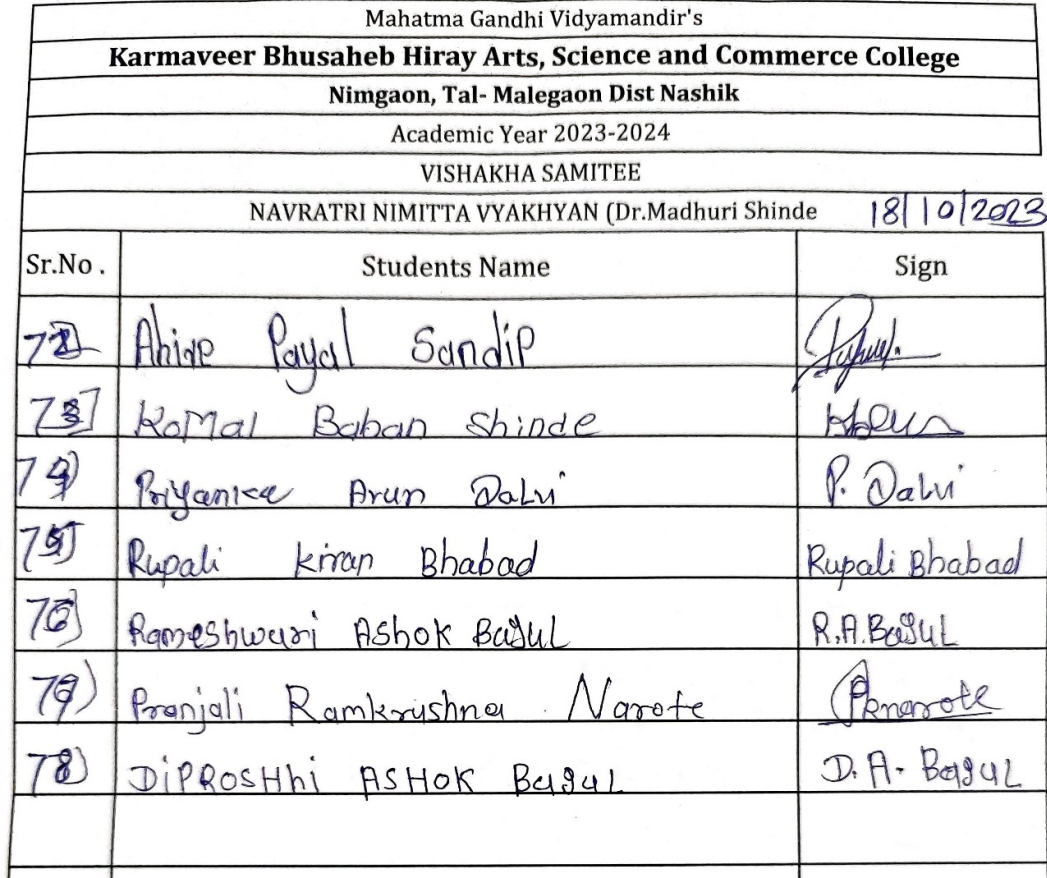 Mahatma Gandhi Vidyamandir's
Karmaveer Bhusaheb Hiray Arts, Science and Commerce College
Nimgaon, Tal- Malegaon Dist Nashik
Academic Year 2023-2024
VISHAKHA SAMITEE
NAVRATRI NIMITTA VYAKHYAN (Dr.Madhuri Shinde 18/10/2023
Sr.No. Students Name Sign
72) Ahire Payal Sandip
73) KoMal Baban Shinde
74) Priyanka Arun Dalvi P. Dalvi
75) Rupali kiran Bhabad Rupali Bhabad
76) Rameshwari AShok Bagul R.A.Bagul
77) Pranjali Ramkrushna Narote Pknarote
78) DiPROSHhi ASHOK Bagul D. A. Bagul